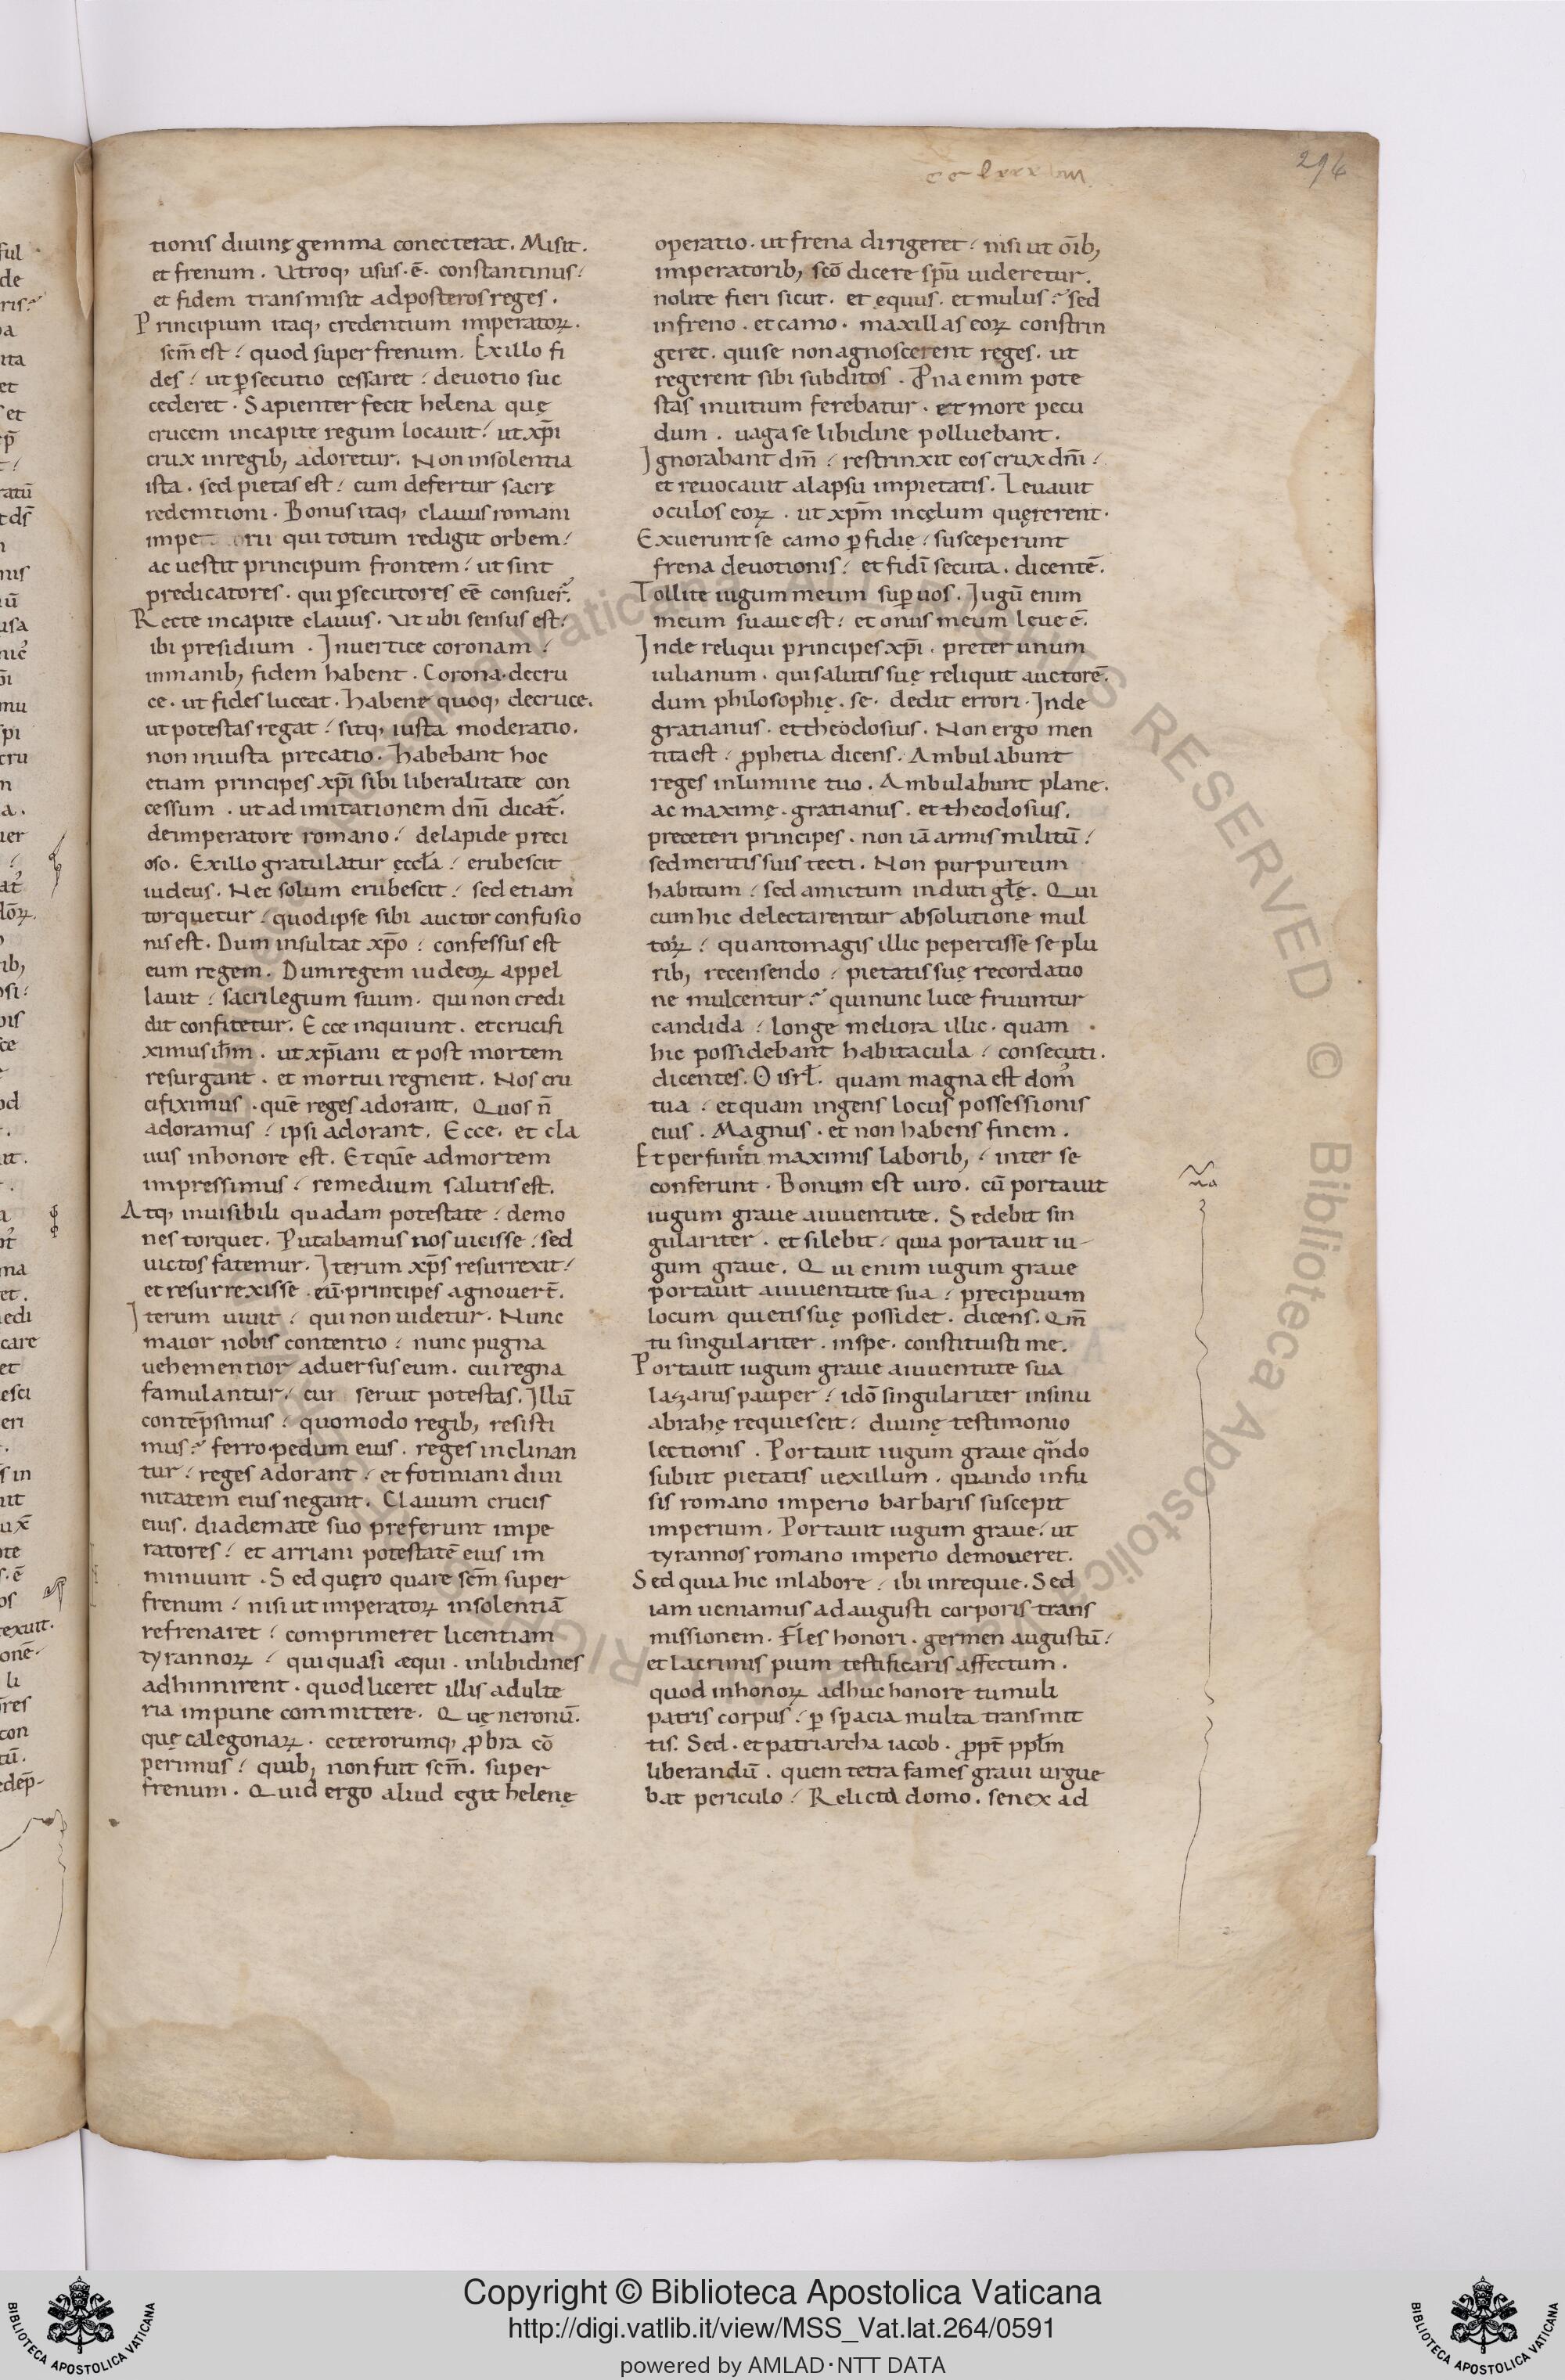 cclxxxviii.
294
tionis diuinę gemma conecterat. Misit.
et frenum. Utroq; usus. ē. constantinus:
et fidem transmisit ad posteros reges.
Principium itaq; credentium imperatoꝝ.
scm̄ est: quod super frenum. Ex illo fi
des: ut ꝑsecutio cessaret: deuotio suc
cederet. Sapienter fecit helena quę
crucem in capite regum locauit: ut xp̄i
crux in regib; adoretur. Non insolentia
ista. sed pietas est: cum defertur sacrę
redemtioni. Bonus itaq; clauus romani
impe orii qui totum redigit orbem:
ac uestit principum frontem: ut sint
predicatores. qui ꝑsecutores eē consuer̄.
Recte in capite clauus. ut ubi sensus est:
ibi presidium. In uertice coronam:
in manib; fidem habent. Corona. de cru
ce. ut fides luceat. habenę quoq; de cruce.
ut potestas regat: sitq; iusta moderatio.
non iniusta precatio. habebant hoc
etiam principes xp̄i sibi liberalitate con
cessum. ut ad imitationem dn̄i dicat̄.
de imperatore romano: de lapide preci
oso. Ex illo gratulatur ęccła: erubescit
iudeus. Nec solum erubescit: sed etiam
torquetur: quod ipse sibi auctor confusio
nis est. Dum insultat xp̄o: confessus est
eum regem. Dum regem iudeoꝝ appel
lauit: sacrilegium suum. qui non credi
dit confitetur. Ecce inquiunt. et crucifi
ximus ih̄m. ut xp̄iani et post mortem
resurgant. et mortui regnent. Nos cru
cifiximus. quē reges adorant. Quos n̄
adoramus: ipsi adorant. Ecce. et cla
uus in honore est. Et quē ad mortem
impressimus: remedium salutis est.
Atq; inuisibili quadam potestate: demo
nes torquet. Putabamus nos uicisse: sed
uictos fatemur. Iterum xp̄s resurrexit:
et resurrexisse. eū. principes agnouer̄t.
Iterum uiuit: qui non uidetur. Nunc
maior nobis contentio: nunc pugna
uehementior aduersus eum. cui regna
famulantur: cui seruit potestas. Illū
contēpsimus: quomodo regib; resisti
mus: ferro. pedum eius. reges inclinan
tur: reges adorant: et fotiniani diui
nitatem eius negant. Clauum crucis
eius. diademate suo preferunt impe
ratores: et arriani potestatē eius im
minuunt. Sed quęro quare scm̄ super
frenum: nisi ut imperatoꝝ insolentiā
refrenaret: comprimeret licentiam
tyrannoꝝ: qui quasi æqui. in libidines
adhinnirent. quod liceret illis adulte
ria impune committere. Quę neronū.
quę calegonaꝝ. ceterorumq; ꝓbra cō
perimus: quib; non fuit scm̄. super
frenum. Quid ergo aliud egit helenę
operatio. ut frena dirigeret: nisi ut oīb;
imperatorib; scō dicere sp̄u uideretur.
nolite fieri sicut. et ęquus. et mulus: sed
in freno. et camo. maxillas eoꝝ constrin
geret. qui se non agnoscerent reges. ut
regerent sibi subditos. Prna enim pote
stas in uitium ferebatur. et more pecu
dum. uaga se libidine polluebant.
Ignorabant dm̄: restrinxit eos crux dn̄i:
et reuocauit a lapsu impietatis. Leuauit
oculos eoꝝ. ut xp̄m in cęlum quęrerent.
Exuerunt se camo ꝑfidię: susceperunt
frena deuotionis: et fidī secuta. dicentē.
Tollite iugum meum suꝑ uos. Iugū enim
meum suaue est: et onus meum leue ē.
Inde reliqui principes xp̄i. preter unum
iulianum. qui salutis suę reliquit auctorē.
dum philosophię. se. dedit errori. Inde
gratianus. et theodosius. Non ergo men
tita est: ꝓphetia dicens. Ambulabunt
reges in lumine tuo. Ambulabunt plane.
ac maximę. gratianus. et theodosius.
pre ceteri principes. non iā armis militū:
sed meritis suis tecti. Non purpureum
habitum: sed amictum induti głę. Qui
cum hic delectarentur absolutione mul
toꝝ: quanto magis illic pepertisse se plu
rib; recensendo: pietatis suę recordatio
ne mulcentur: qui nunc luce fruuntur
candida: longe meliora illic. quam
hic possidebant habitacula: consecuti.
dicentes. O isrł. quam magna est dom̄
tua: et quam ingens locus possessionis
eius. Magnus. et non habens finem.
Et perfuncti maximis laborib;: inter se
conferunt. Bonum est uiro. cū portauit
iugum graue a iuuentute. Sedebit sin
gulariter. et silebit: quia portauit iu-
gum graue. Qui enim iugum graue
portauit a iuuentute sua: precipuum
locum quietis suę possidet. dicens. Qm̄
tu singulariter. in spe. constituisti me.
Portauit iugum graue a iuuentute sua
lazarus pauper: idō singulariter in sinu
abrahę requiescit: diuinę testimonio
lectionis. Portauit iugum graue qn̄do
subiit pietatis uexillum. quando infu
sis romano imperio barbaris suscepit
imperium. Portauit iugum graue: ut
tyrannos romano imperio demoueret.
Sed quia hic in labore: ibi in requie. Sed
iam ueniamus ad augusti corporis trans
missionem. Fles honori. germen augustū:
et lacrimis pium testificaris affectum.
quod inhonoꝝ adhuc honore tumuli
patris corpus: ꝑ spacia multa transmit
tis. Sed. et patriarcha iacob. ꝓpt̄ ppłm
liberandū. quem tetra fames graui urgue
bat periculo: Relicta domo. senex ad
Copyright © Biblioteca Apostolica Vaticana
http://digi.vatlib.it/view/MSS_Vat.lat.264/0591
powered by AMLAD·NTT DATA
BIBLIOTECA APOSTOLICA VATICANA
BIBLIOTECA APOSTOLICA VATICANA